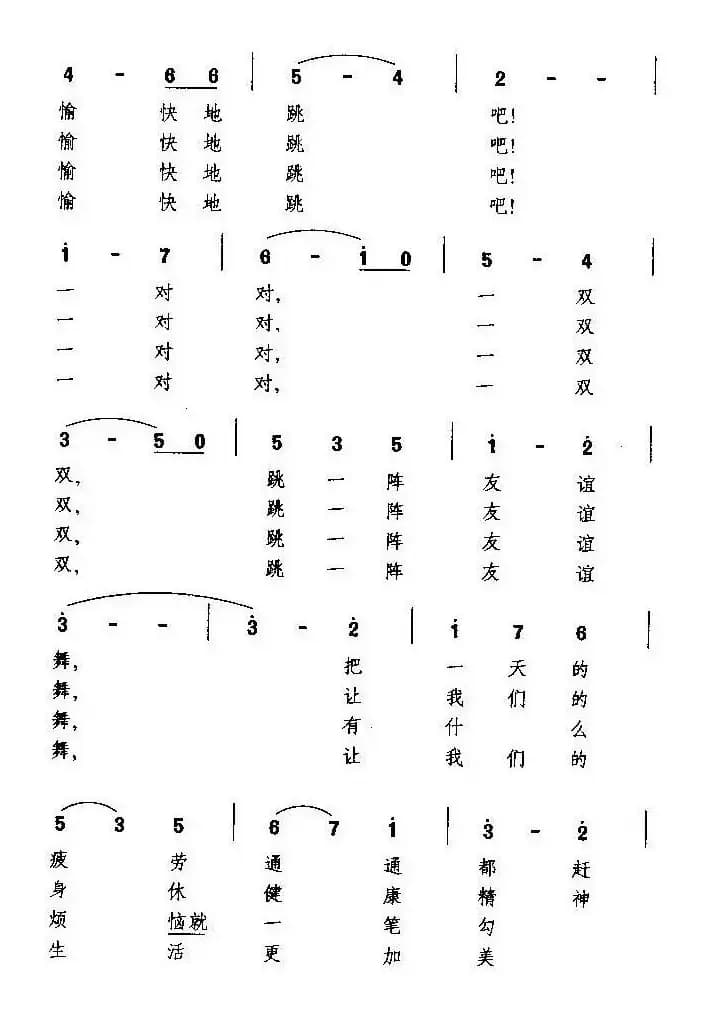 4 - 6 6 | 5 - 4 | 2 - - |
愉 快 地 跳 吧!
愉 快 地 跳 吧!
愉 快 地 跳 吧!
愉 快 地 跳 吧!
1̇ - 7 | 6 - 1̇ 0 | 5 - 4 |
一 对 对, 一 双
一 对 对, 一 双
一 对 对, 一 双
一 对 对, 一 双
3 - 5 0 | 5 3 5 | 1̇ - 2̇ |
双, 跳 一 阵 友 谊
双, 跳 一 阵 友 谊
双, 跳 一 阵 友 谊
双, 跳 一 阵 友 谊
3̇ - - | 3̇ - 2̇ | 1̇ 7 6 |
舞, 把 一 天 的
舞, 让 我 们 的
舞, 有 什 么
舞, 让 我 们 的
5 3 5 | 6 7 1̇ | 3̇ - 2̇ |
疲 劳 通 通 都 赶
身 休 健 康 精 神
烦 恼就 一 笔 勾
生 活 更 加 美